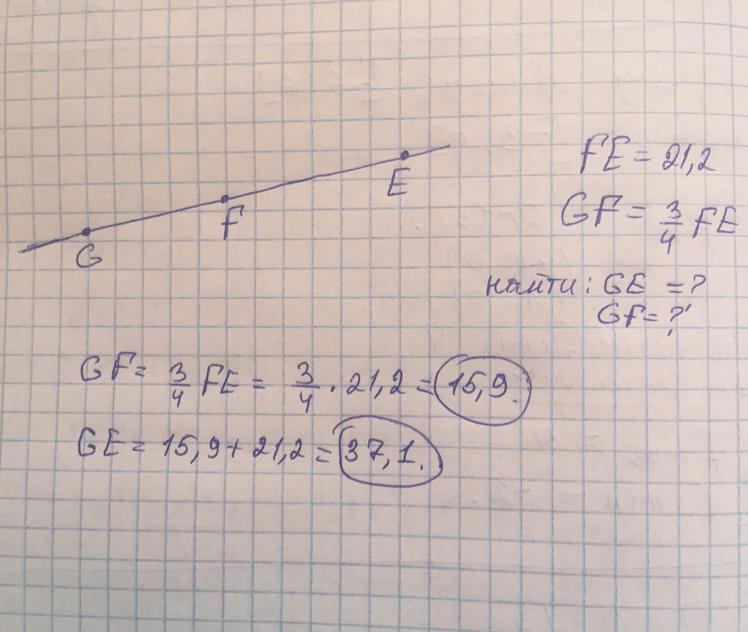 G
F
E
FE = 21,2
GF = 3/4 FE
найти: GE = ?
GF = ?
GF = 3/4 FE = 3/4 · 21,2 = 15,9.
GE = 15,9 + 21,2 = 37,1.